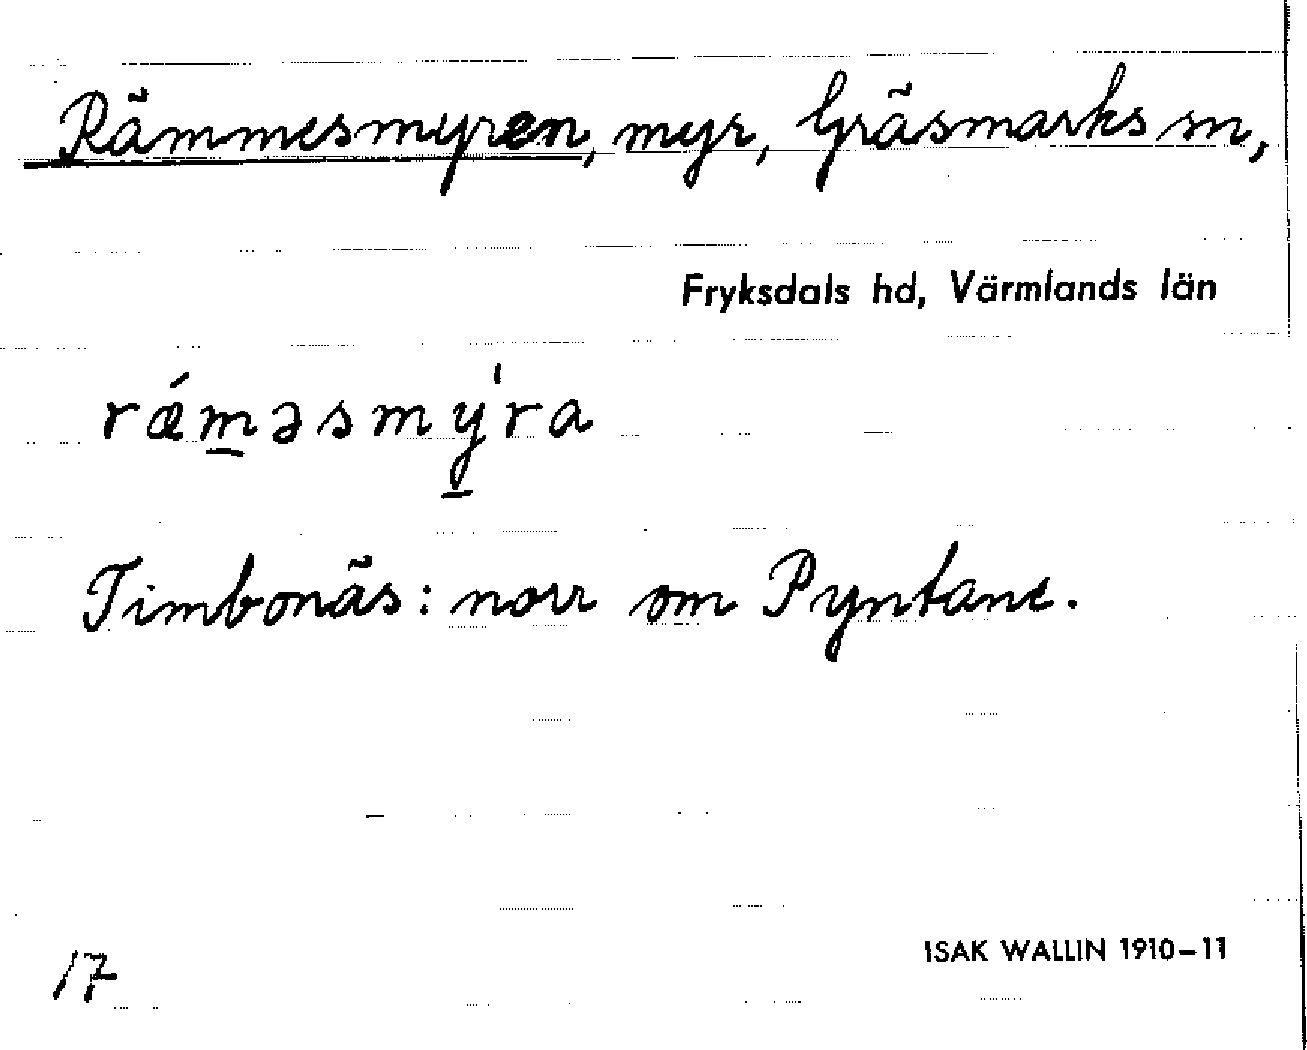 Rämmesmyren, myr, Gräsmarks sn,
Fryksdals hd, Värmlands län
rǽm̲əsmy̲̍ra
Timbonäs: norr om Pyntane.
17
ISAK WALLIN 1910–11